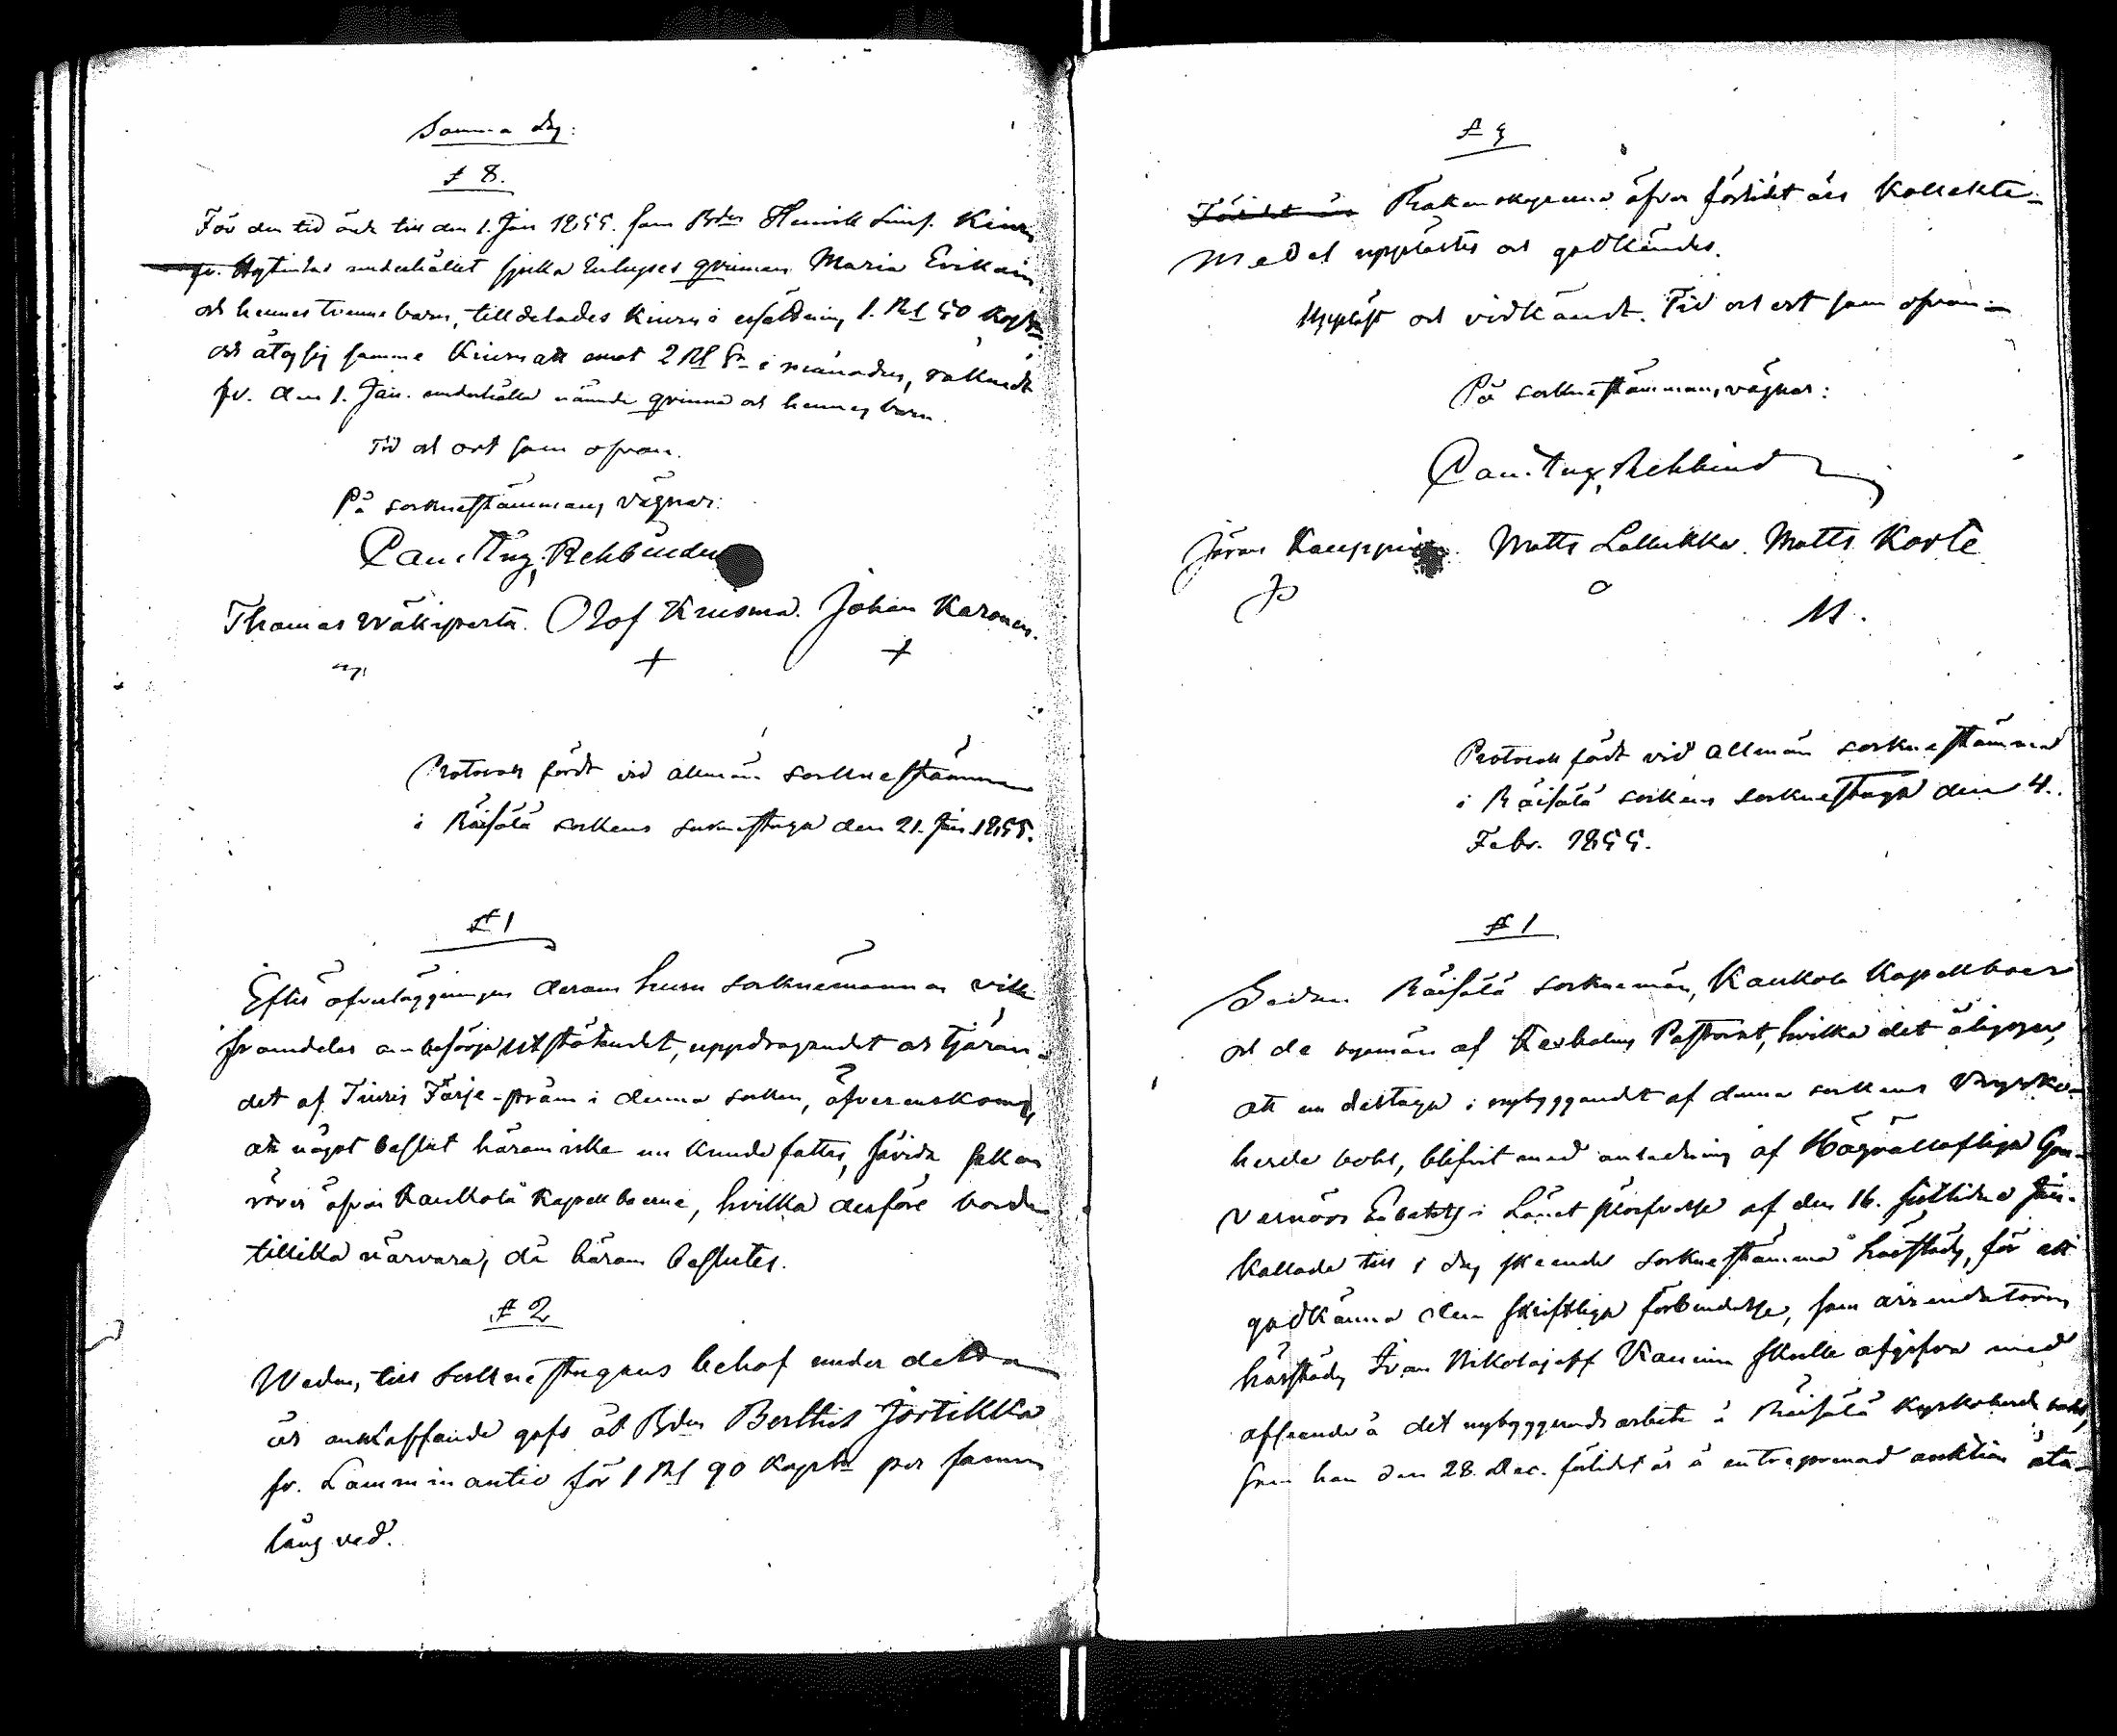 Samma dag:
§ 8.
För den tid ända till den 1. Jan 1855. som Bden Henrik Simf. Kiuru
fr. underhållet sjuka qvinnan Maria Erikain
och hennes tvenne barn, tilldelades Kiuru i ersättning 1. Rbl 50 Kop Sr
och åtog sig samme Kiuru att emot 2 Rbl Sr i månaden, räknadt
fr. den 1. Jan. underhålla nämnde qvinna och hennes barn.
Tid och ort som ofvan.
På sockenstämmans vägnar:
Carl Aug. Rehbinder
Thomas Wäkiparta. Olof Kiusma. Johan Karonen.
+ +
Protocoll fördt vid allmän sockenstämma
i Räisälä sockens sockenstuga den 21. Jan. 1855.
§ 1
Efter öfverläggningen derom huru sockenemännen ville
framdeles ombesörja utskötandet, uppdragandet och tjäran-
det af Tiuris Färje-pråm i denna socken, öfverenskoms,
att något beslut härom icke nu kunde fattas, såvida saken
rörer äfven Kaukola Kapellboerne, hvilka derföre borde
tillika närvara, då härom beslutes.
§ 2
Weden, till sockenestugans behof under detta
år anskaffande gafs åt Bden Berthil Jortikka
fr. Lamminantio för 1 Rbl 90 Kop Sr per famn
lång ved.
§ 9
Räkenskaperna öfver förlidet års Kollekte-
medel upplästes och godkändes.
Uppläst och vidkändt. Tid och ort som ofvan.
På sockenstämmans vägnar:
Carl Aug. Rehbinder
Jöran Kauppinen. Matts Lallukka. Matts Korte
M.
Protocoll fördt vid allmän sockenestämma
i Räisälä sockens sockenestuga den 4.
Febr. 1855.
§ 1
Sedan Räisälä sockenemän, Kaukola Kapellboer
och de byamän af Kexholms Pastorat, hvilka det åligger,
att deltaga i nybyggandet af denna sockens Kyrko-
herde bohl, blifvit med anledning af Högvällofliga Gou-
vernörs Embetets i Länet skrifvelse af den 16. sistlidne Jan.
kallade till i dag skeende sockenestämma härstädes, för att
godkänna den skriftliga förbindelse, som arrendatoren
härstädes Ivan Nikolajeff Kaunin skulle afgifva med
afseende å det nybyggnadsarbete å Räisälä Kyrkoherde bohl,
som han den 28. Dec. förlidet år å entreprenad auktion åta-